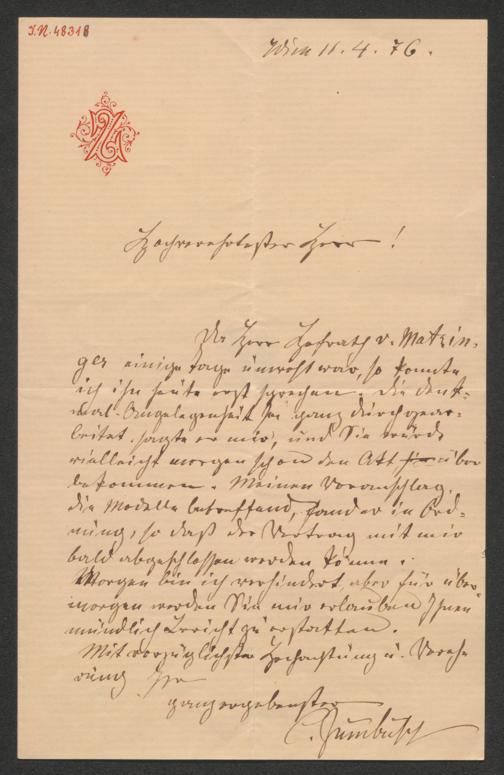 I.N. 48318
Wien 11. 4. 76.
Hochverehrtester Herr!
Da Herr Hofrath v. Matzin-
ger einige Tage unwohl war, so konnte
ich ihn heute erst sprechen. Die Denk-
mal-Angelegenheit sei ganz durchgear-
beitet sagte er mir, und Sie würde
vielleicht morgen schon den Akt über
bekommen. Meinen Voranschlag
die Modelle betreffend, fand er in Ord-
nung, so daß der Vertrag mit mir
bald abgeschlossen werden könne.
Morgen bin ich verhindert aber für über
morgen werden Sie mir erlauben Ihnen
mündlich Bericht zu erstatten.
Mit vorzüglichster Hochachtung u. Vereh
rung Ihr
ganz ergebenster
C. Zumbusch